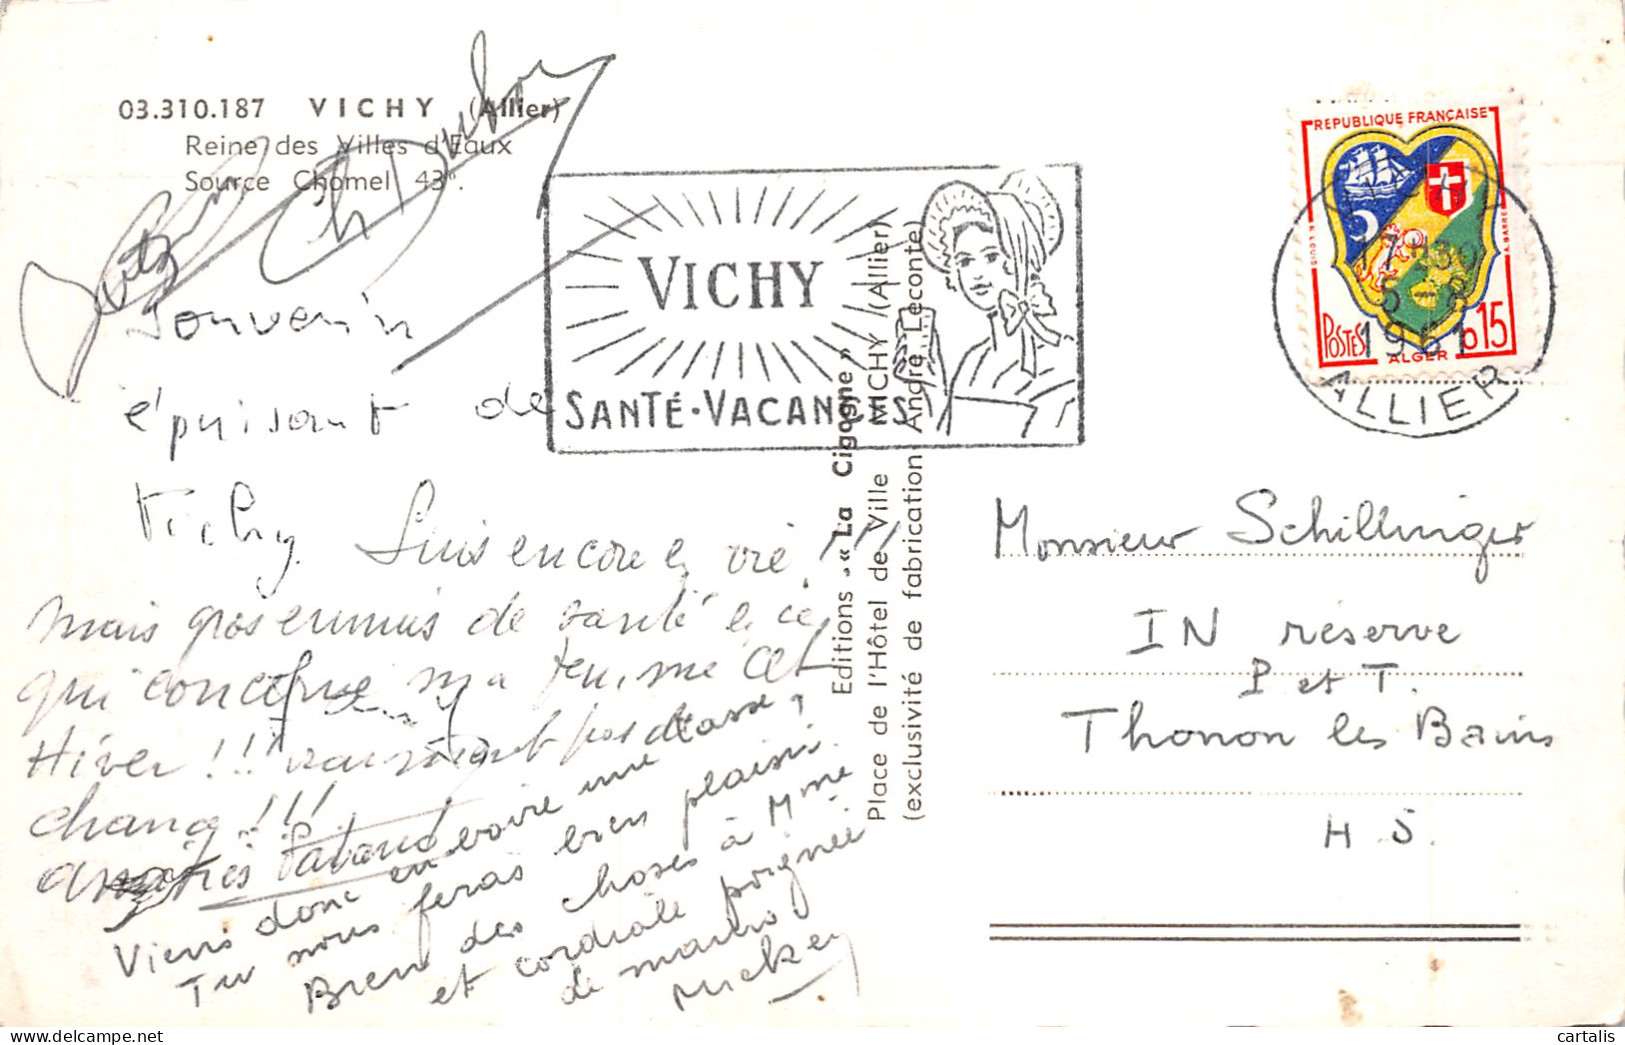 03.310.187 VICHY (Allier)
Reine des Villes d'Eaux
Source Chomel 43°.
Souvenir
épuisant de
Vichy.
Suis encore en vie !!!
mais gros ennuis de santé en ce
qui concerne ma femme cet
Hiver !!!
pas de
chance !!!
Viens donc en boire une tasse,
Tu nous feras bien plaisir.
Bien des choses à Mme
et cordiale poignée
de mains
Mickey
VICHY
SANTÉ·VACANCES
Editions - « La Cigogne »
Place de l'Hôtel de Ville VICHY (Allier)
(exclusivité de fabrication André Leconte)
REPUBLIQUE FRANÇAISE
POSTES
ALGER
0,15
17H30
5-8
1961
ALLIER
Monsieur Schillinger
IN réserve
P et T.
Thonon les Bains
H S.
cartalis